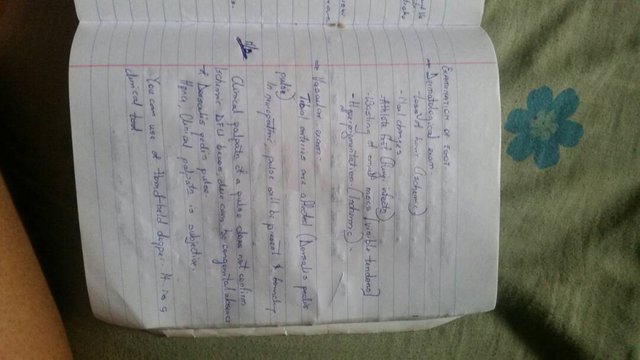 EXAMINATION OF FOOT
→ Dermatological exam
- Loss of hair (Ischemic)
- Nail changes
- Athlete foot (fungal infection)
- Wasting of small muscles [visible tendons]
- Hyperpigmentation (Ischemic).
→ Vascular exam
Tibial arteries are affected (Dorsalis pedis pulse)
In neuropathic, pulse will be present & bounding
N/B
Clinical palpation of a pulse does not confirm
ischemic DFU because there can be congenital absence
of Dorsalis pedis pulse.
Hence, Clinical palpation is subjective.
You can use a Hand-held doppler. It is a
clinical tool